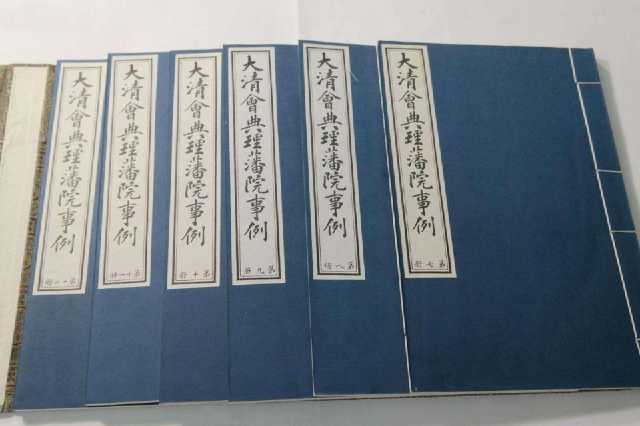 大清會典理藩院事例
第七册
大清會典理藩院事例
第八册
大清會典理藩院事例
第九册
大清會典理藩院事例
第十册
大清會典理藩院事例
第十一册
大清會典理藩院事例
第十二册